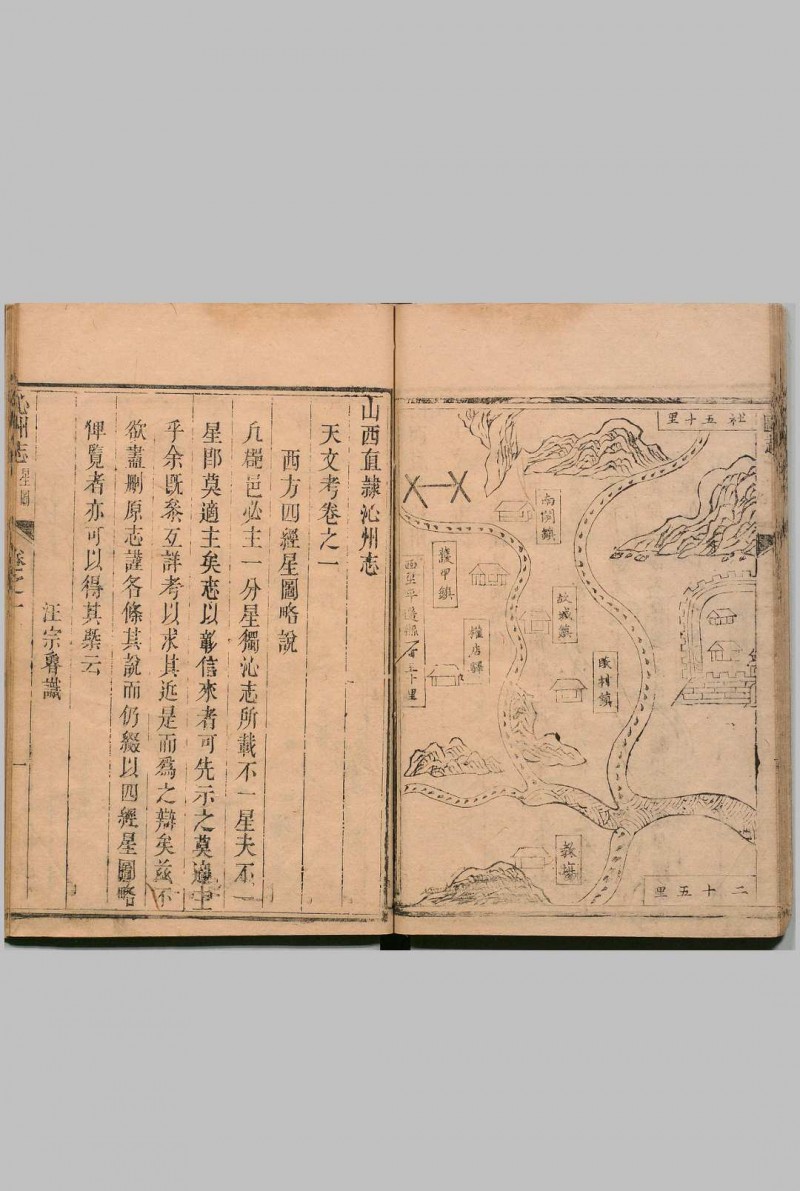 社五十里
南關鎮
故城鎮
護甲鎮
權店驛
西至平遙縣百二十里
二十五里
山西直隸沁州志
天文考卷之一
西方四經星圖略說
凡郡邑必主一分星獨沁志所載不一星夫不一
星即莫適主矣志以彰信來者可先示之莫適主
乎余既叅互詳考以求其近是而爲之辯矣茲不
欲盡刪原志謹各條其說而仍綴以四經星圖略
俾覽者亦可以得其槩云
汪宗魯識
沁州志
星圖
卷之一
一